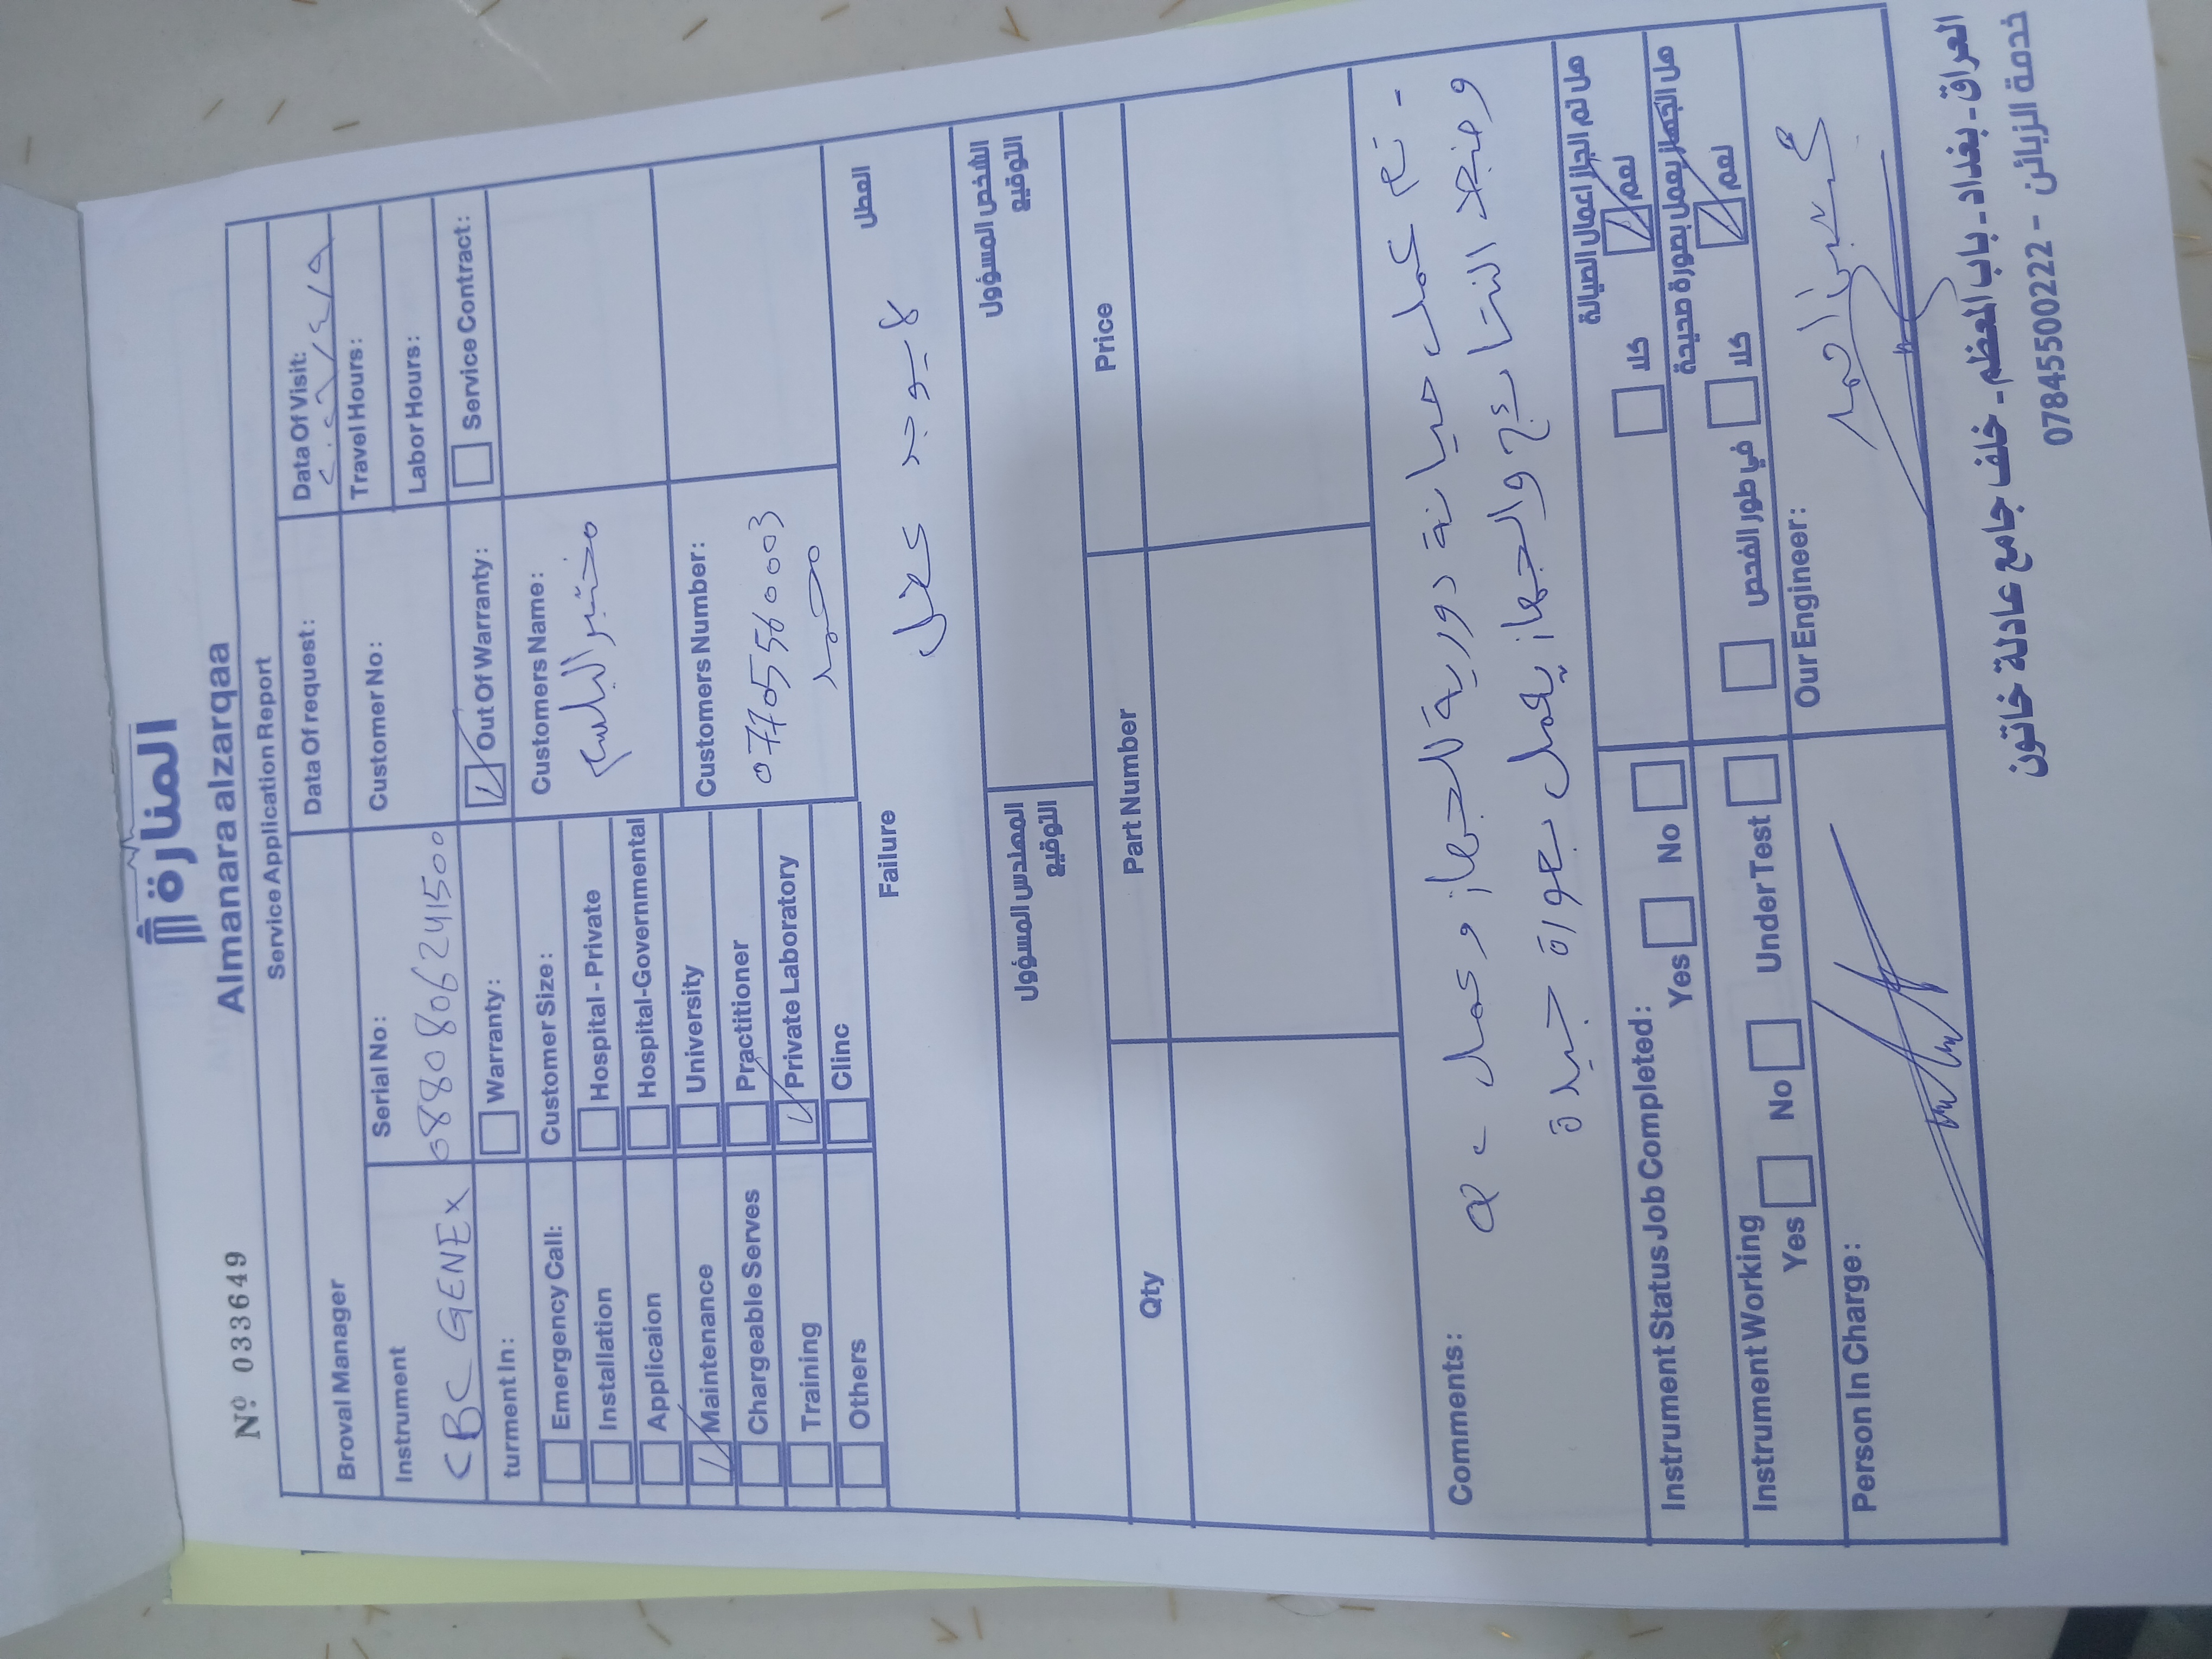 Nº 033649
المنارة
Almanara alzarqaa
Service Application Report
Data Of request:
Data Of Visit:
Broval Manager
Customer No:
Travel Hours:
Labor Hours:
Instrument
CBC GENEX
Serial No:
0880806241500
turment In:
Warranty:
Out Of Warranty:
Service Contract:
Emergency Call:
Installation
Applicaion
Maintenance
Chargeable Serves
Training
Others
Customer Size:
Hospital - Private
Hospital-Governmental
University
Practitioner
Private Laboratory
Clinc
Customers Name:
مختبر
Customers Number:
07705560003
محمد
Failure
العطل
لا يوجد عطل
المهندس المسؤول
التوقيع
الشخص المسؤول
التوقيع
Qty
Part Number
Price
Comments:
- تم عمل صيانة دورية للجهاز وعمل
وفحص النتائج والجهاز يعمل بصورة جيدة
Instrument Status Job Completed:
Yes
No
هل تم انجاز اعمال الصيانة
كلا
نعم
Instrument Working
Yes
No
Under Test
هل الجهاز يعمل بصورة صحيحة
في طور الفحص
كلا
نعم
Person In Charge:
Our Engineer:
العراق - بغداد - باب المعظم - خلف جامع عادلة خاتون
خدمة الزبائن - 07845500222